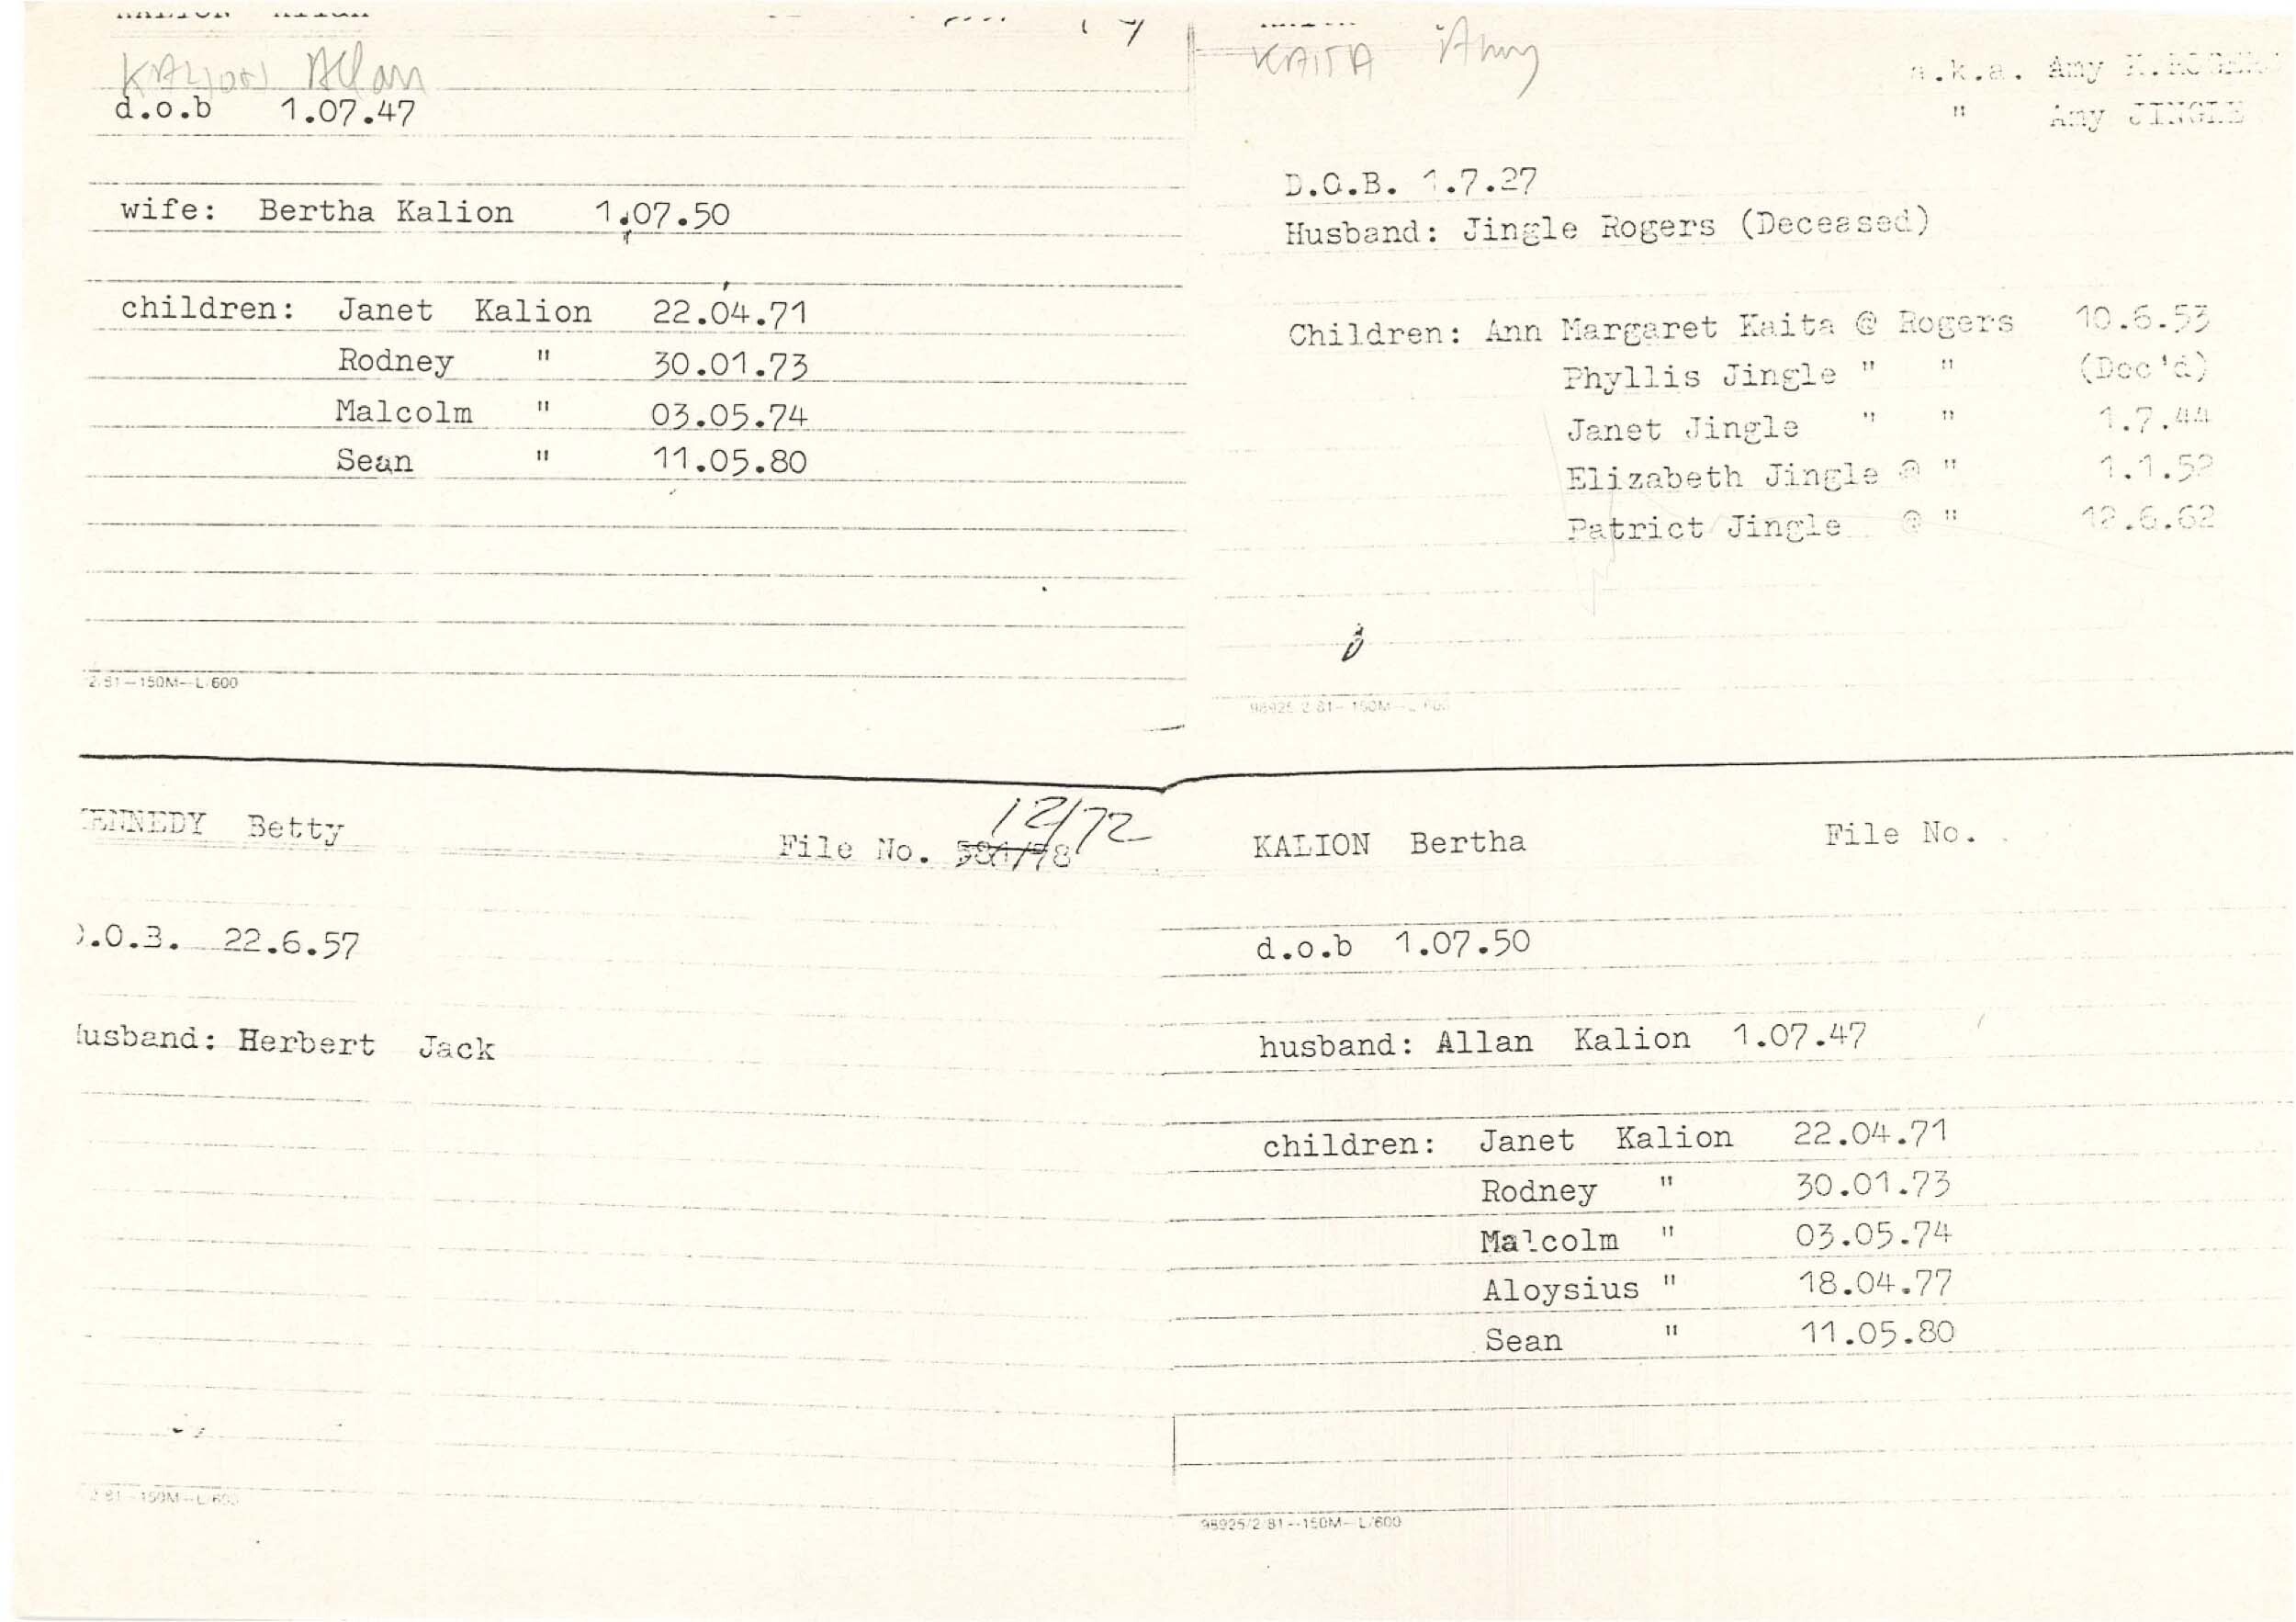 KALION Allan
d.o.b 1.07.47
wife: Bertha Kalion 1.07.50
children: Janet Kalion 22.04.71
Rodney " 30.01.73
Malcolm " 03.05.74
Sean " 11.05.80
2/81—150M—L/600
KAITA Amy
a.k.a. Amy
" Amy JINGLE
D.O.B. 1.7.27
Husband: Jingle Rogers (Deceased)
Children: Ann Margaret Kaita @ Rogers 10.6.53
Phyllis Jingle " " (Dec'd)
Janet Jingle " " 1.7.44
Elizabeth Jingle @ " 1.1.52
Patrict Jingle @ " 12.6.62
98925/2/81—150M—L/600
KENNEDY Betty
12/72
File No.
D.O.B. 22.6.57
Husband: Herbert Jack
2/81—150M—L/600
KALION Bertha File No.
d.o.b 1.07.50
husband: Allan Kalion 1.07.47
children: Janet Kalion 22.04.71
Rodney " 30.01.73
Malcolm " 03.05.74
Aloysius " 18.04.77
Sean " 11.05.80
98925/2/81—150M—L/600